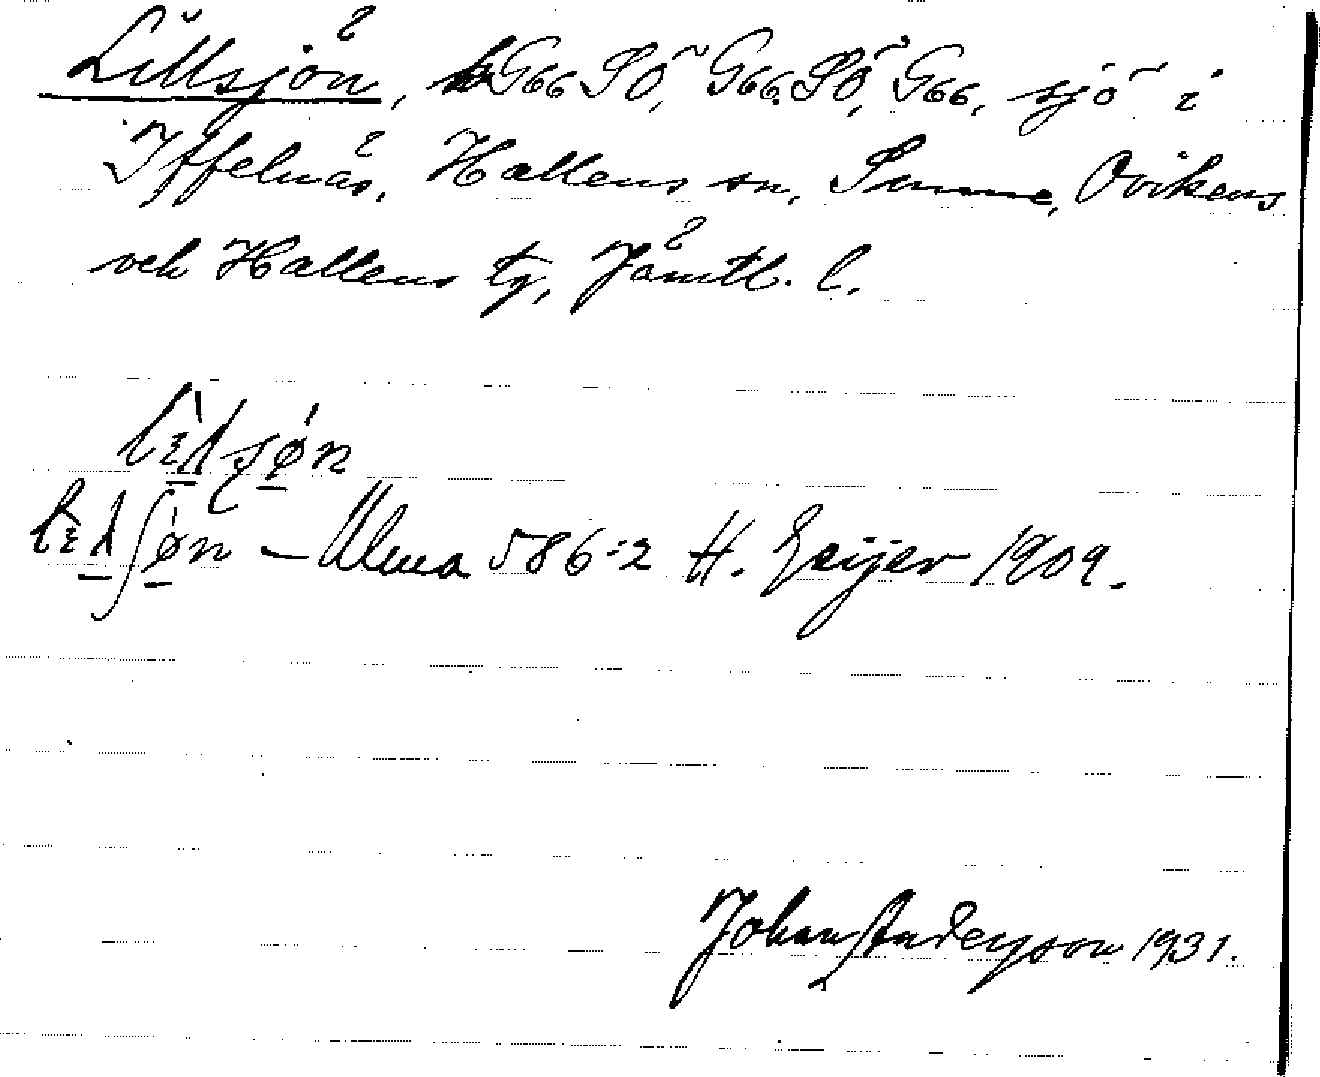 Lillsjön, G66 SÖ, G66 SÖ, G66, sjö i
Yffelnäs, Hallens sn, Sunne, Ovikens
och Hallens tg, Jämtl. l.
lìlsjǿn
lìlʃøn – Ulma 586:2 H. Geijer 1909.
Johan Anderson 1931.